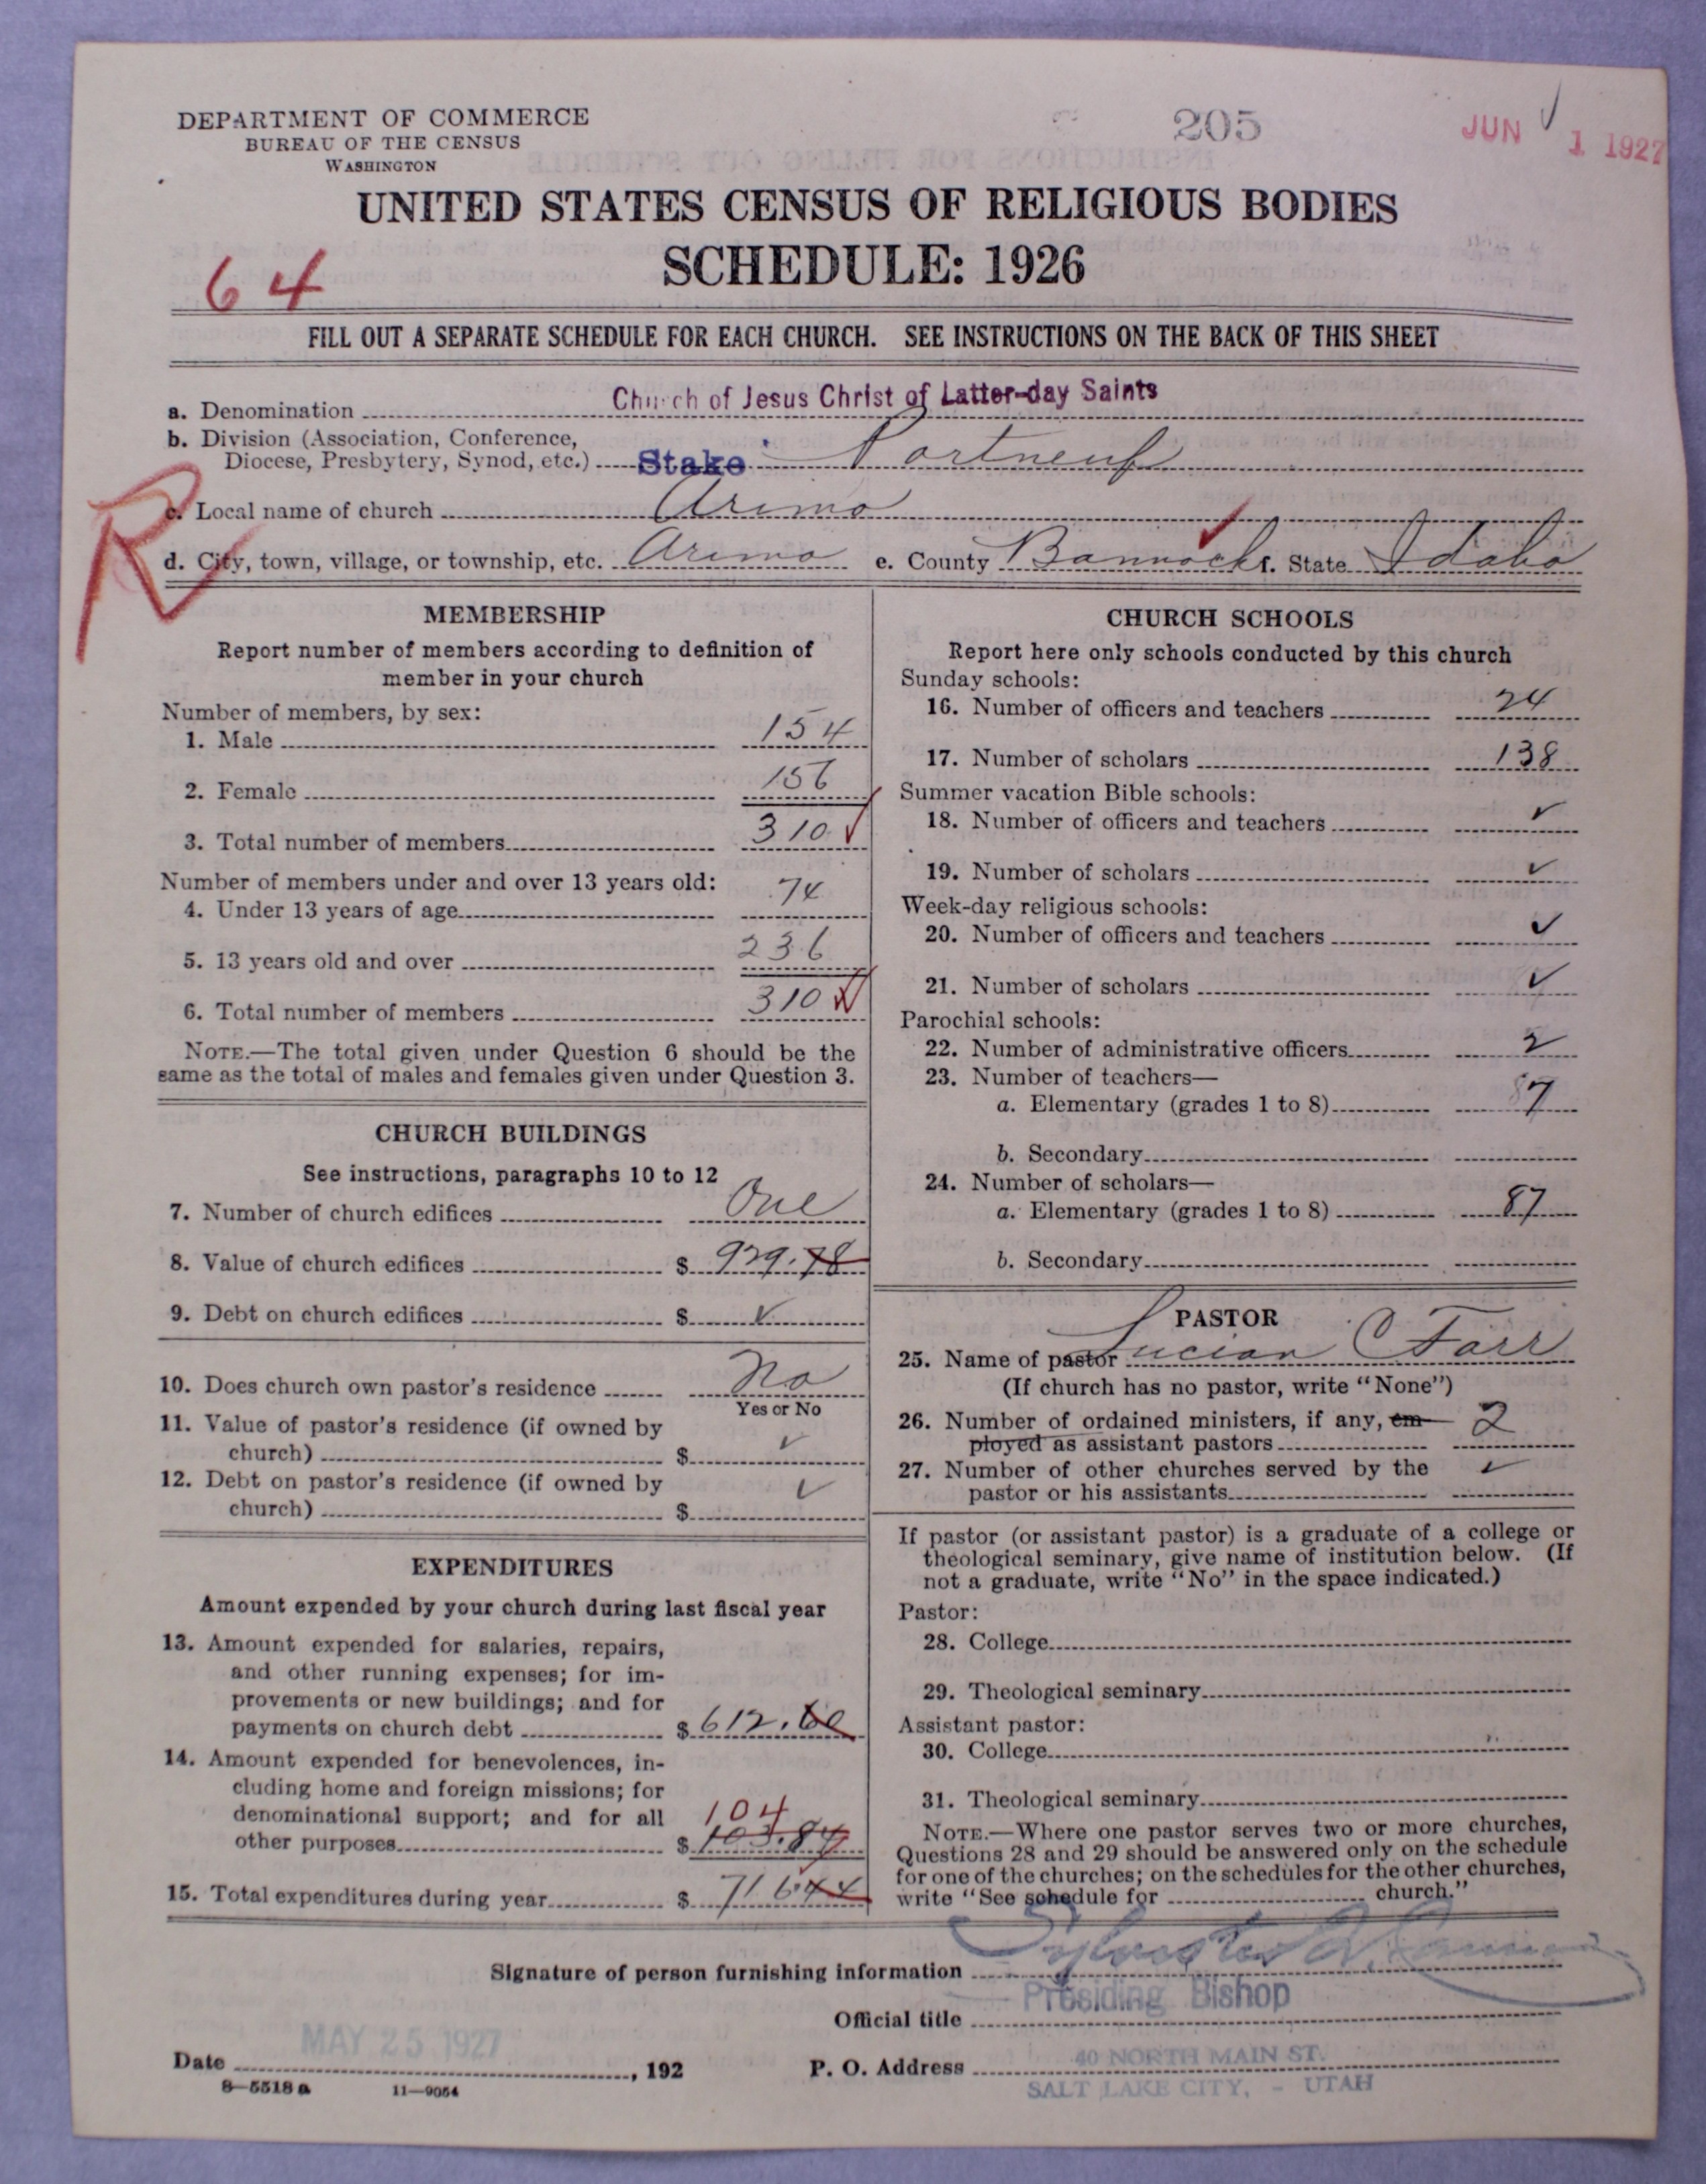 DEPARTMENT OF COMMERCE
BUREAU OF THE CENSUS
WASHINGTON
205
JUN 1 1927
UNITED STATES CENSUS OF RELIGIOUS BODIES
SCHEDULE: 1926
64
FILL OUT A SEPARATE SCHEDULE FOR EACH CHURCH. SEE INSTRUCTIONS ON THE BACK OF THIS SHEET
a. Denomination Church of Jesus Christ of Latter-day Saints
b. Division (Association, Conference,
Diocese, Presbytery, Synod, etc.) Stake Portneuf
R
c. Local name of church Arimo
d. City, town, village, or township, etc. Arimo e. County Bannock f. State Idaho
MEMBERSHIP
Report number of members according to definition of
member in your church
Number of members, by sex:
1. Male 154
2. Female 156
3. Total number of members 310 ✓
Number of members under and over 13 years old:
4. Under 13 years of age 74
5. 13 years old and over 236
6. Total number of members 310
NOTE.—The total given under Question 6 should be the
same as the total of males and females given under Question 3.
CHURCH BUILDINGS
See instructions, paragraphs 10 to 12
7. Number of church edifices One
8. Value of church edifices $ 929.78
9. Debt on church edifices $ ✓
10. Does church own pastor's residence No
Yes or No
11. Value of pastor's residence (if owned by
church) $ ✓
12. Debt on pastor's residence (if owned by
church) $ ✓
EXPENDITURES
Amount expended by your church during last fiscal year
13. Amount expended for salaries, repairs,
and other running expenses; for im-
provements or new buildings; and for
payments on church debt $ 612.60
14. Amount expended for benevolences, in-
cluding home and foreign missions; for
denominational support; and for all 104
other purposes $ 103.84
15. Total expenditures during year $ 716.44
CHURCH SCHOOLS
Report here only schools conducted by this church
Sunday schools:
16. Number of officers and teachers 24
17. Number of scholars 138
Summer vacation Bible schools:
18. Number of officers and teachers ✓
19. Number of scholars ✓
Week-day religious schools:
20. Number of officers and teachers ✓
21. Number of scholars ✓
Parochial schools:
22. Number of administrative officers 2
23. Number of teachers—
a. Elementary (grades 1 to 8) 7
b. Secondary
24. Number of scholars—
a. Elementary (grades 1 to 8) 87
b. Secondary
PASTOR
25. Name of pastor Lucian C Farr
(If church has no pastor, write "None")
26. Number of ordained ministers, if any, em-
ployed as assistant pastors 2
27. Number of other churches served by the
pastor or his assistants ✓
If pastor (or assistant pastor) is a graduate of a college or
theological seminary, give name of institution below. (If
not a graduate, write "No" in the space indicated.)
Pastor:
28. College
29. Theological seminary
Assistant pastor:
30. College
31. Theological seminary
NOTE.—Where one pastor serves two or more churches,
Questions 28 and 29 should be answered only on the schedule
for one of the churches; on the schedules for the other churches,
write "See schedule for church."
Signature of person furnishing information Sylvester Q. Cannon
Official title Presiding Bishop
Date MAY 25 1927, 192 P. O. Address 40 NORTH MAIN ST.
SALT LAKE CITY, - UTAH
8—5518 a 11—9054